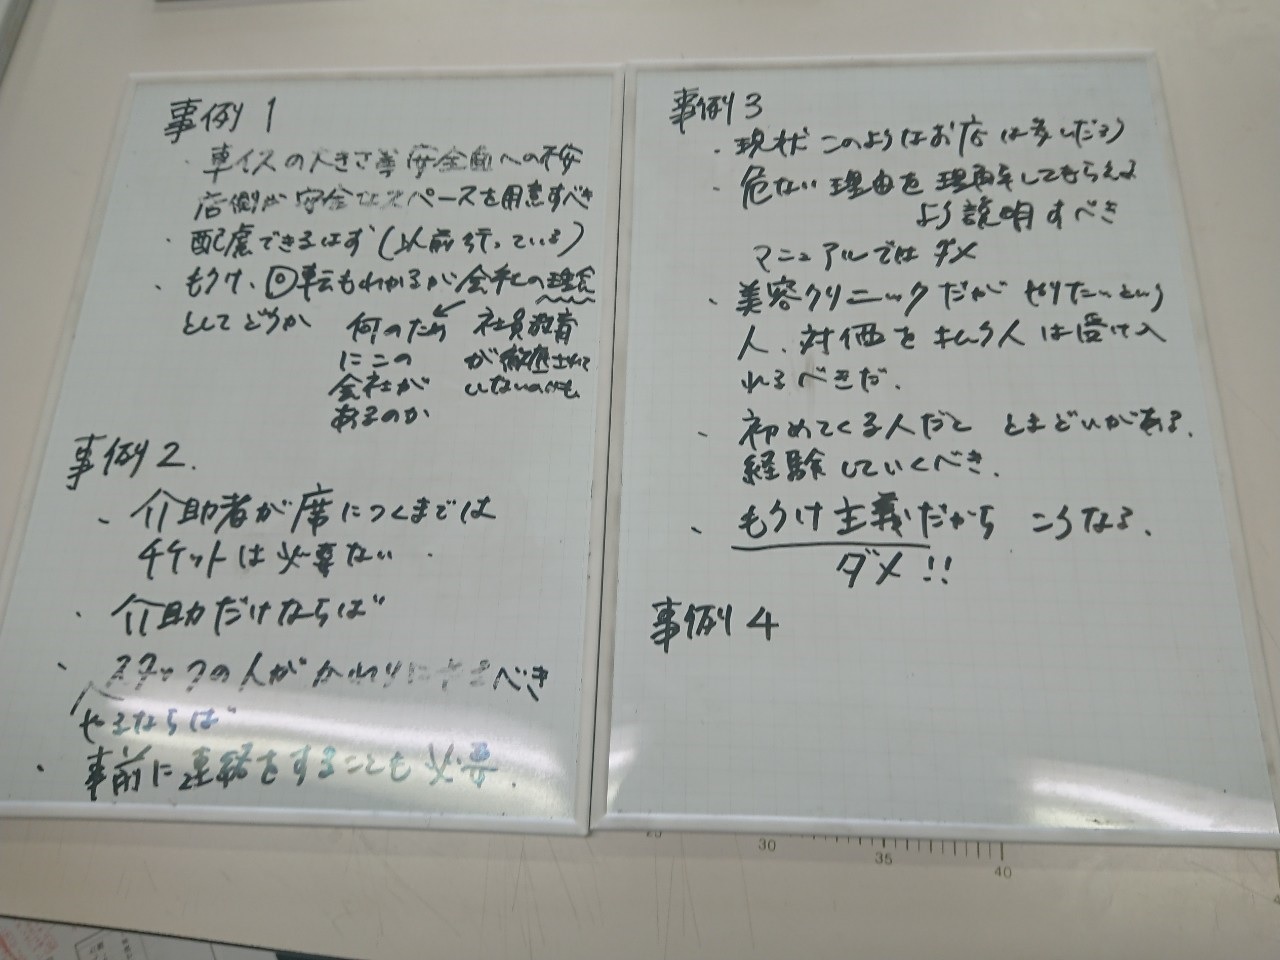 事例1
・車イスの大きさ等 安全面への不安
店側が安全なスペースを用意すべき
・配慮できるはず(以前行っている)
・もうけ、回転もわかるが会社の理念
としてどうか
何のため
にこの
会社が
あるのか
社員教育
が徹底されて
いないのでは
事例2.
・介助者が席につくまでは
チケットは必要ない
・介助だけならば
・スタッフの人がかわりにやるべき
やるならば
・事前に連絡をすることも必要.
事例3
・現状このようなお店は多いだろう
・危ない理由を理解してもらえる
よう説明すべき
マニュアルではダメ
・美容クリニックだが やりたいという
人、対価を払う人は受け入
れるべきだ.
・初めてくる人だと とまどいがある.
経験していくべき.
・もうけ主義だから こうなる.
ダメ!!
事例4
30
35
40